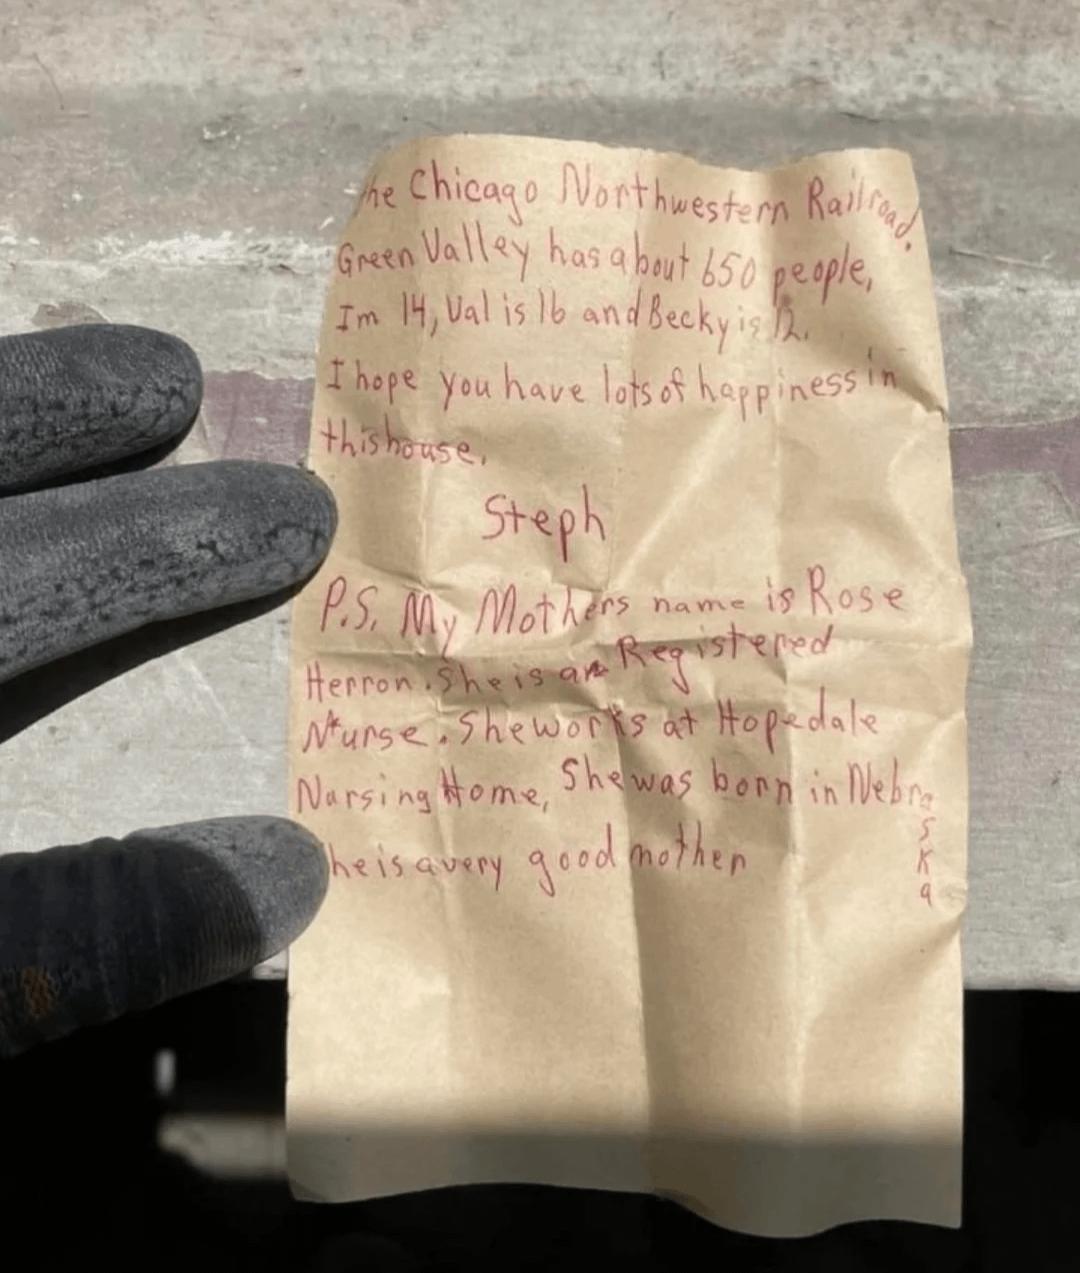 he Chicago Northwestern Railroad.
Green Valley has about 650 people,
Im 14, Val is 16 and Becky is 12.
I hope you have lots of happiness in
this house.
Steph
P.S. My Mothers name is Rose
Herron. She is an Registered
Nurse. She works at Hopedale
Nursing Home, She was born in Nebraska
he is a very good mother